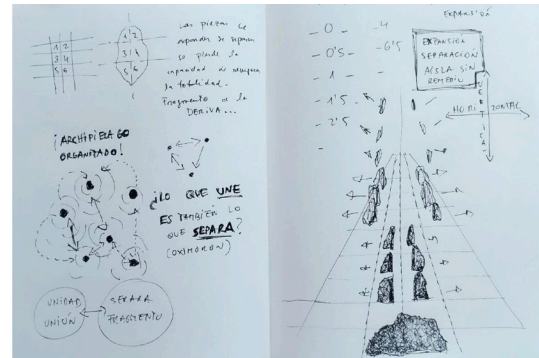 1 2
3 4
5 6
1 2
3 4
5 6
Las piezas se
expanden se separan
se pierde la
capacidad de
la totalidad.
Fragmento a la
DERIVA...
¡ARCHIPIELAGO
ORGANIZADO!
¿LO QUE UNE
ES TAMBIÉN LO
QUE SEPARA?
(OXIMORON)
UNIDAD
UNIÓN
SEPARA
FRAGMENTO
EXPANSIÓN
- 0 -
- 0'5 -
- 1 -
- 1'5 -
- 2'5 -
-4
-6'5
EXPANSIÓN
SEPARACIÓN
AISLA SIN
REMEDIO
HORIZONTAL
VERTICAL